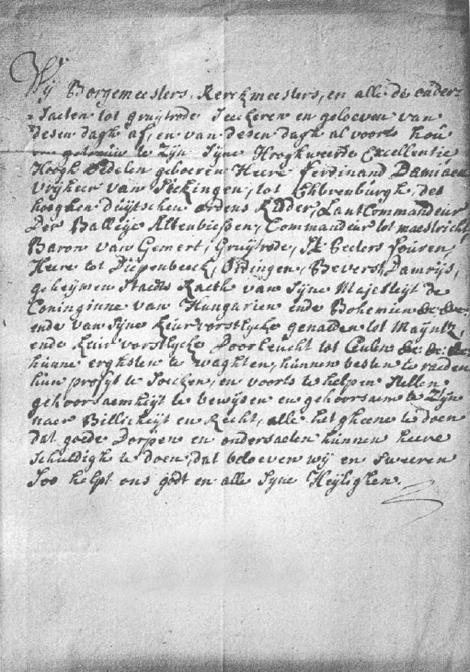 Wij Borgemeesters, Kerckmeesters, en alle de onder-
saeten tot gruytrode Seekeren en geloeven van
desen dagh af, en van desen dagh al voorts hou
en getrouw te Zijn Syne Hooghweerde Excellentie
Hoogh Eddelen geboeren Heere Ferdinand Damiaen
vrijheer van Sickingen, tot Ehbrenburgh, des
hooghen duytschen ordens Ridder, Lantcommandeur
Der Balleije Altenbiessen, Commandeur tot maestricht
Baron van Gemert, Gruytrode, St. Peeters Voúren
Heere tot Diepenbeeck, Ordingen, Beverst, Damrijs,
geheymen Staedts Raethe van Syne Majesteyt de
Coninginne van Hungarien ende Bohemien &c: &c:
ende van Syne keurvorstlycke genaden tot Mayntz
ende keurvorstlycke Doorleucht tot Ceulen &c: &c: &c:
húnne erghsten te waghten, húnnen besten te raeden
hun profyt te Soecken, en voorts te helpen Stellen
gehoorsaemheyt te bewysen en gehoorsam te Zijn
naer Billickeyt en Recht, alle het gheene te doen
dat goede Dorpen en ondersaeten húnnen heere
Schuldigh te doen, dat beloeven wij en Sweeren
Soo helpt ons godt en alle Syne Heylighen.